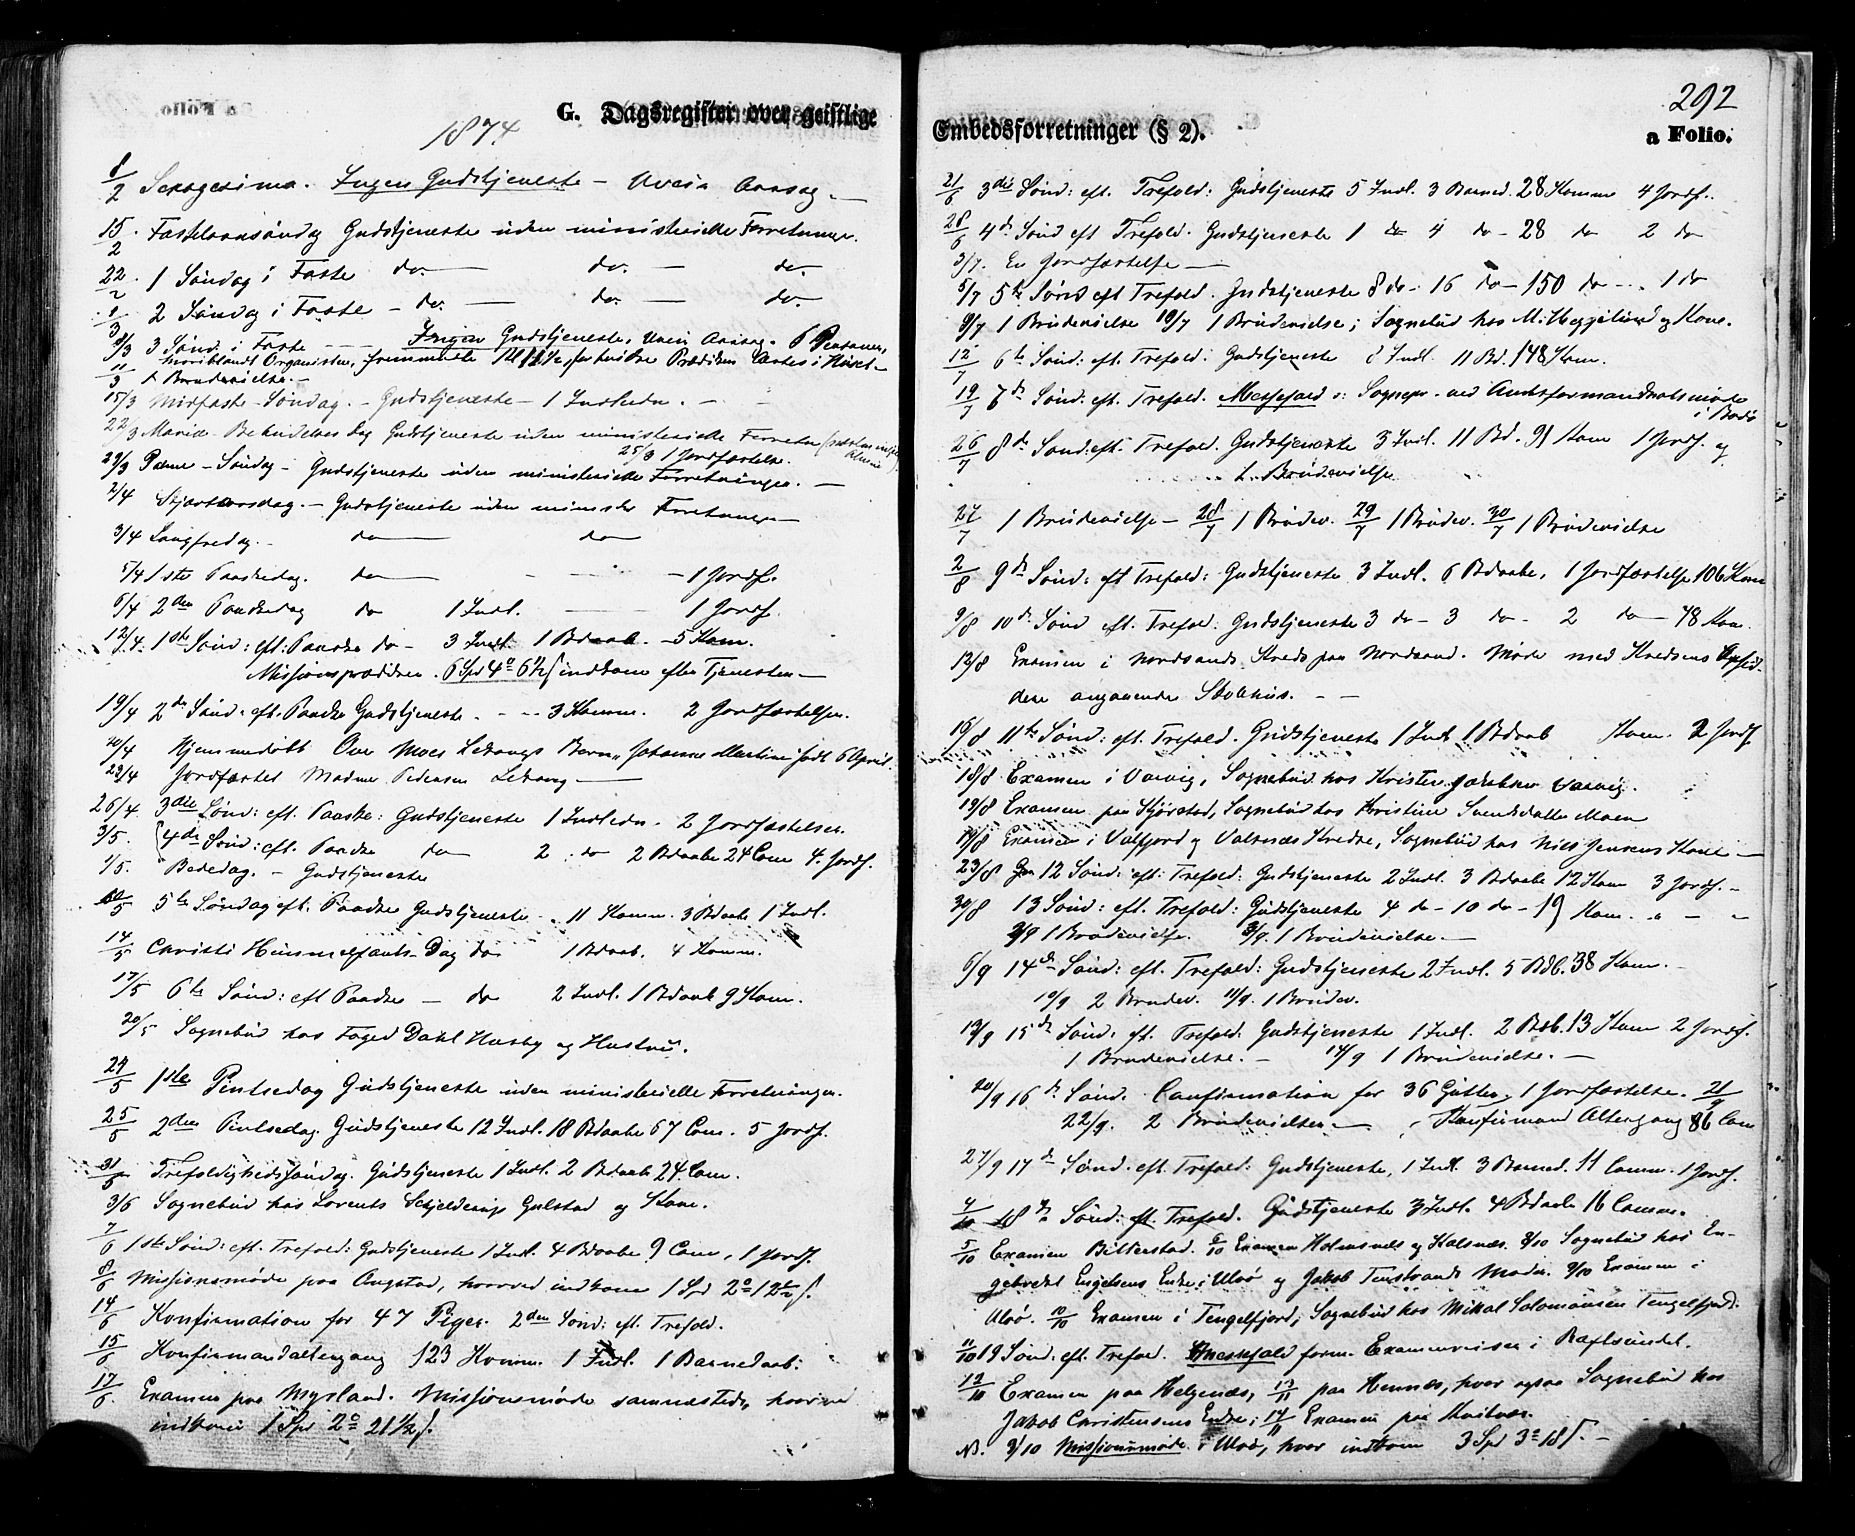 G. Dagsregister over geistlige
1874
8/2 Sexagesima. Ingen Gudstjeneste – Uveir Aarsag. –
15/2 Fastelavnsöndag Gudstjeneste uden ministerielle Forretninger.
22/2 1 Söndag i Faste do. – do. – do.
1/3 2 Söndag i Faste – do. – do. – do
8/3 3 Sönd. i Faste – – Ingen Gudstjeneste, Uveir Aarsag. 6 Personer,
hvoriblandt Organisten, fremmødte til Kirke, for hvilke Prædiken læstes i Huset –
11/3 Brudevielse. –
15/3 Midfaste-Söndag. – Gudstjeneste – 1 Indledn. – –
22/3 Mariæ Bebudelses Dag Gudstjeneste uden ministerielle Forretn
25/3 1 Jordfæstelse.
29/3 Palme-Söndag – Gudstjeneste uden ministerielle Forretninger. –
2/4 Skjærtorsdag. – Gudstjeneste uden minister Forretninger –
3/4 Langfredag. – do – do
5/4 1ste Paaskedag. do – – – 1 Jordf.
6/4 2den Paaskedag do 1 Indl. – 1 Jordf.
12/4. 1ste Sönd: eft: Paaske do – 3 Indl. 1 Bdaab. – 5 Kom.
Missionsprædiken. 6 Spd 4 o 6 1/2 s indkom efter Tjenesten –
19/4 2den Sönd. eft. Paaske Gudstjeneste. – – 3 Komm. 2 Jordfæstelser.
20/4 Hjemmedöbt Ove Moes Lekangs Barn, Johanne Martine født 6 April.
22/4 Jordfæstet Madme Pedersen Lekang –
26/4 3die Sönd: eft. Paaske: Gudstjeneste 1 Indledn. 2 Jordfæstelser.
3/5. 4de Sönd: eft. Paaske do 2 do 2 Bdaabe 24 Com 4. Jordf.
1/5. Bededag. – Gudstjeneste
10/5 5te Söndag eft. Paaske Gudstjeneste – 11 Komm. 3 Bdaabe 1 Indl.
14/5 Christi Himmelfarts-Dag do 1 Bdaab. 4 Komm.
17/5 6te Sönd: eft Paaske – do 2 Indl. 1 Bdaab 9 Kom.
20/5 Sognebud hos Foged Dahl Husby og Hustru.
24/5 1ste Pintsedag Gudstjeneste uden ministerielle Forretninger.
25/5 2den Pintsedag. Gudstjeneste 12 Indl. 18 Bdaabe 67 Com. 5 Jordf.
31/5 Trefoldighedssöndag. Gudstjeneste 1 Indl. 2 Bdaabe 24. Com.
3/6 Sognebud hos Lorents Schjelderup Gulstad og Kone.
7/6 1ste Sönd: eft. Trefold: Gudstjeneste 1 Indl. 4 Bdaabe 9 Com, 1 Jordf.
8/6 Missionsmöde paa Angstad, hvorved indkom 1 Spd 2 o 12 s.
14/6 Konfirmation for 47 Piger. 2den Sönd: eft. Trefold.
15/6 Konfirmandaltergang 123 Komm. 1 Indl. 1 Barnedaab.
17/6 Examen paa Mysland. Missionsmöde sammesteds, hvorved
indkom 1 Spd 2 o 21 1/2 s.
292
Embedsforretninger (§ 2).
a Folio.
21/6 3die Sönd: eft. Trefold: Gudstjeneste 5 Indl. 3 Barned. 28 Komm 4 Jordf..
28/6 4de Sönd eft Trefold. Gudstjeneste 1 do 4 do – 28 do 2 do
3/7. En Jordfæstelse –
5/7 5te Sönd eft Trefold. Gudstjeneste 8 do – 16 do – 150 do – .. 1 do
9/7 1 Brudevielse 10/7 1 Brudevielse; Sognebud hos M. Heggelund og Kone.
12/7 6te Sönd: eft. Trefold: Gudstjeneste 2 Indl. 11 Bd. 148 Kom.
19/7 7de Sönd. eft. Trefold. Messefald s: Sognepr. ved Amtsformandskabsmöde
i Bodö
26/7 8de Sönd: eft. Trefold. Gudstjeneste 3 Indl. 11 Bd. 91 Kom 1 Jordf. og
1. Brudevielse
27/7 1 Brudevielse – 28/7 1 Brudev. 29/7 1 Brudev. 30/7 1 Brudevielse
2/8 9de Sönd: eft Trefold: Gudstjeneste 3 Indl. 6 Bdaabe, 1 Jordfæstelse 106 Kom
9/8 10de Sönd eft. Trefold: Gudstjeneste 3 do – 3 do – 2 do – 78 Kom.
12/8 Examen i Nordsands Kreds paa Nordsand. Möde med Kredsens Opsid-
dere angaaende Skolehus. – –
16/8 11te Sönd: eft. Trefold. Gudstjeneste 1 Indl 1 Bdaab Kom. 2 Jordf
18/8 Examen i Varvig, Sognebud hos Krister Jakobsen Varvig.
19/8 Examen paa Skjörstad, Sognebud hos Kristine Svendsdatter Moen
19/8 Examen i Valfjord og Valsnæs Kredse, Sognebud hos Niels Jensens Kone –
23/8 12 Sönd: eft: Trefold: Gudstjeneste 2 Indl. 3 Bdaabe 12 Kom 3 Jordf. –
30/8 13 Sönd: eft. Trefold: Gudstjeneste 4 do – 10 do – 19 Kom. " – –
2/9 1 Brudevielse. 3/9. 1 Brudevielse. –
6/9 14de Sönd: eft. Trefold: Gudstjeneste 2 Indl. 5 Bdb. 38 Kom. –
10/9 2 Brudev. 11/9. 1 Brudev.
13/9 15de Sönd. eft. Trefold. Gudstjeneste 1 Indl. 2 Bdb. 13 Kom 2 Jordf.
1 Brudevielse. – 14/9 1 Brudevielse. –
20/9 16de Sönd. Confirmation for 36 Gutter, 1 Jordfæstelse. 21/9
22/9. 2 Brudevielser. – Konfirmand Altergang 86 Com
27/9 17de Sönd. eft. Trefold: Gudstjeneste, 1 Indl. 3 Barned. 11 Comm. 1 Jordf.
4/10 18de Sönd: eft. Trefold. Gudstjeneste 3 Indl. 4 Bdaabe 16 Comm.
5/10 Examen Bitterstad. 6/10 Examen Holmsnæs og Kalsnæs. 8/10 Sognebud hos En-
gebrekt Engelsens Enke i Ulvö og Jakob Tenstrands Moder. 9/10 Examen i
Ulvö. 10/10 Examen i Tengelfjord, Sognebud hos Mikal Salomonsen Tengelfjord.
11/10 19 Sönd: eft. Trefold. Messefald form. Examensreiser i Raftsundet.
12/10 Examen paa Helgenæs, 13/11 paa Hennæs, hvor ogsaa Sognebud hos
Jakob Christensens Enke; 14/11 Examen paa
NB. 9/10 Missionsmöde i Ulvö, hvor indkom 3 Spd 3 o 18 s. –